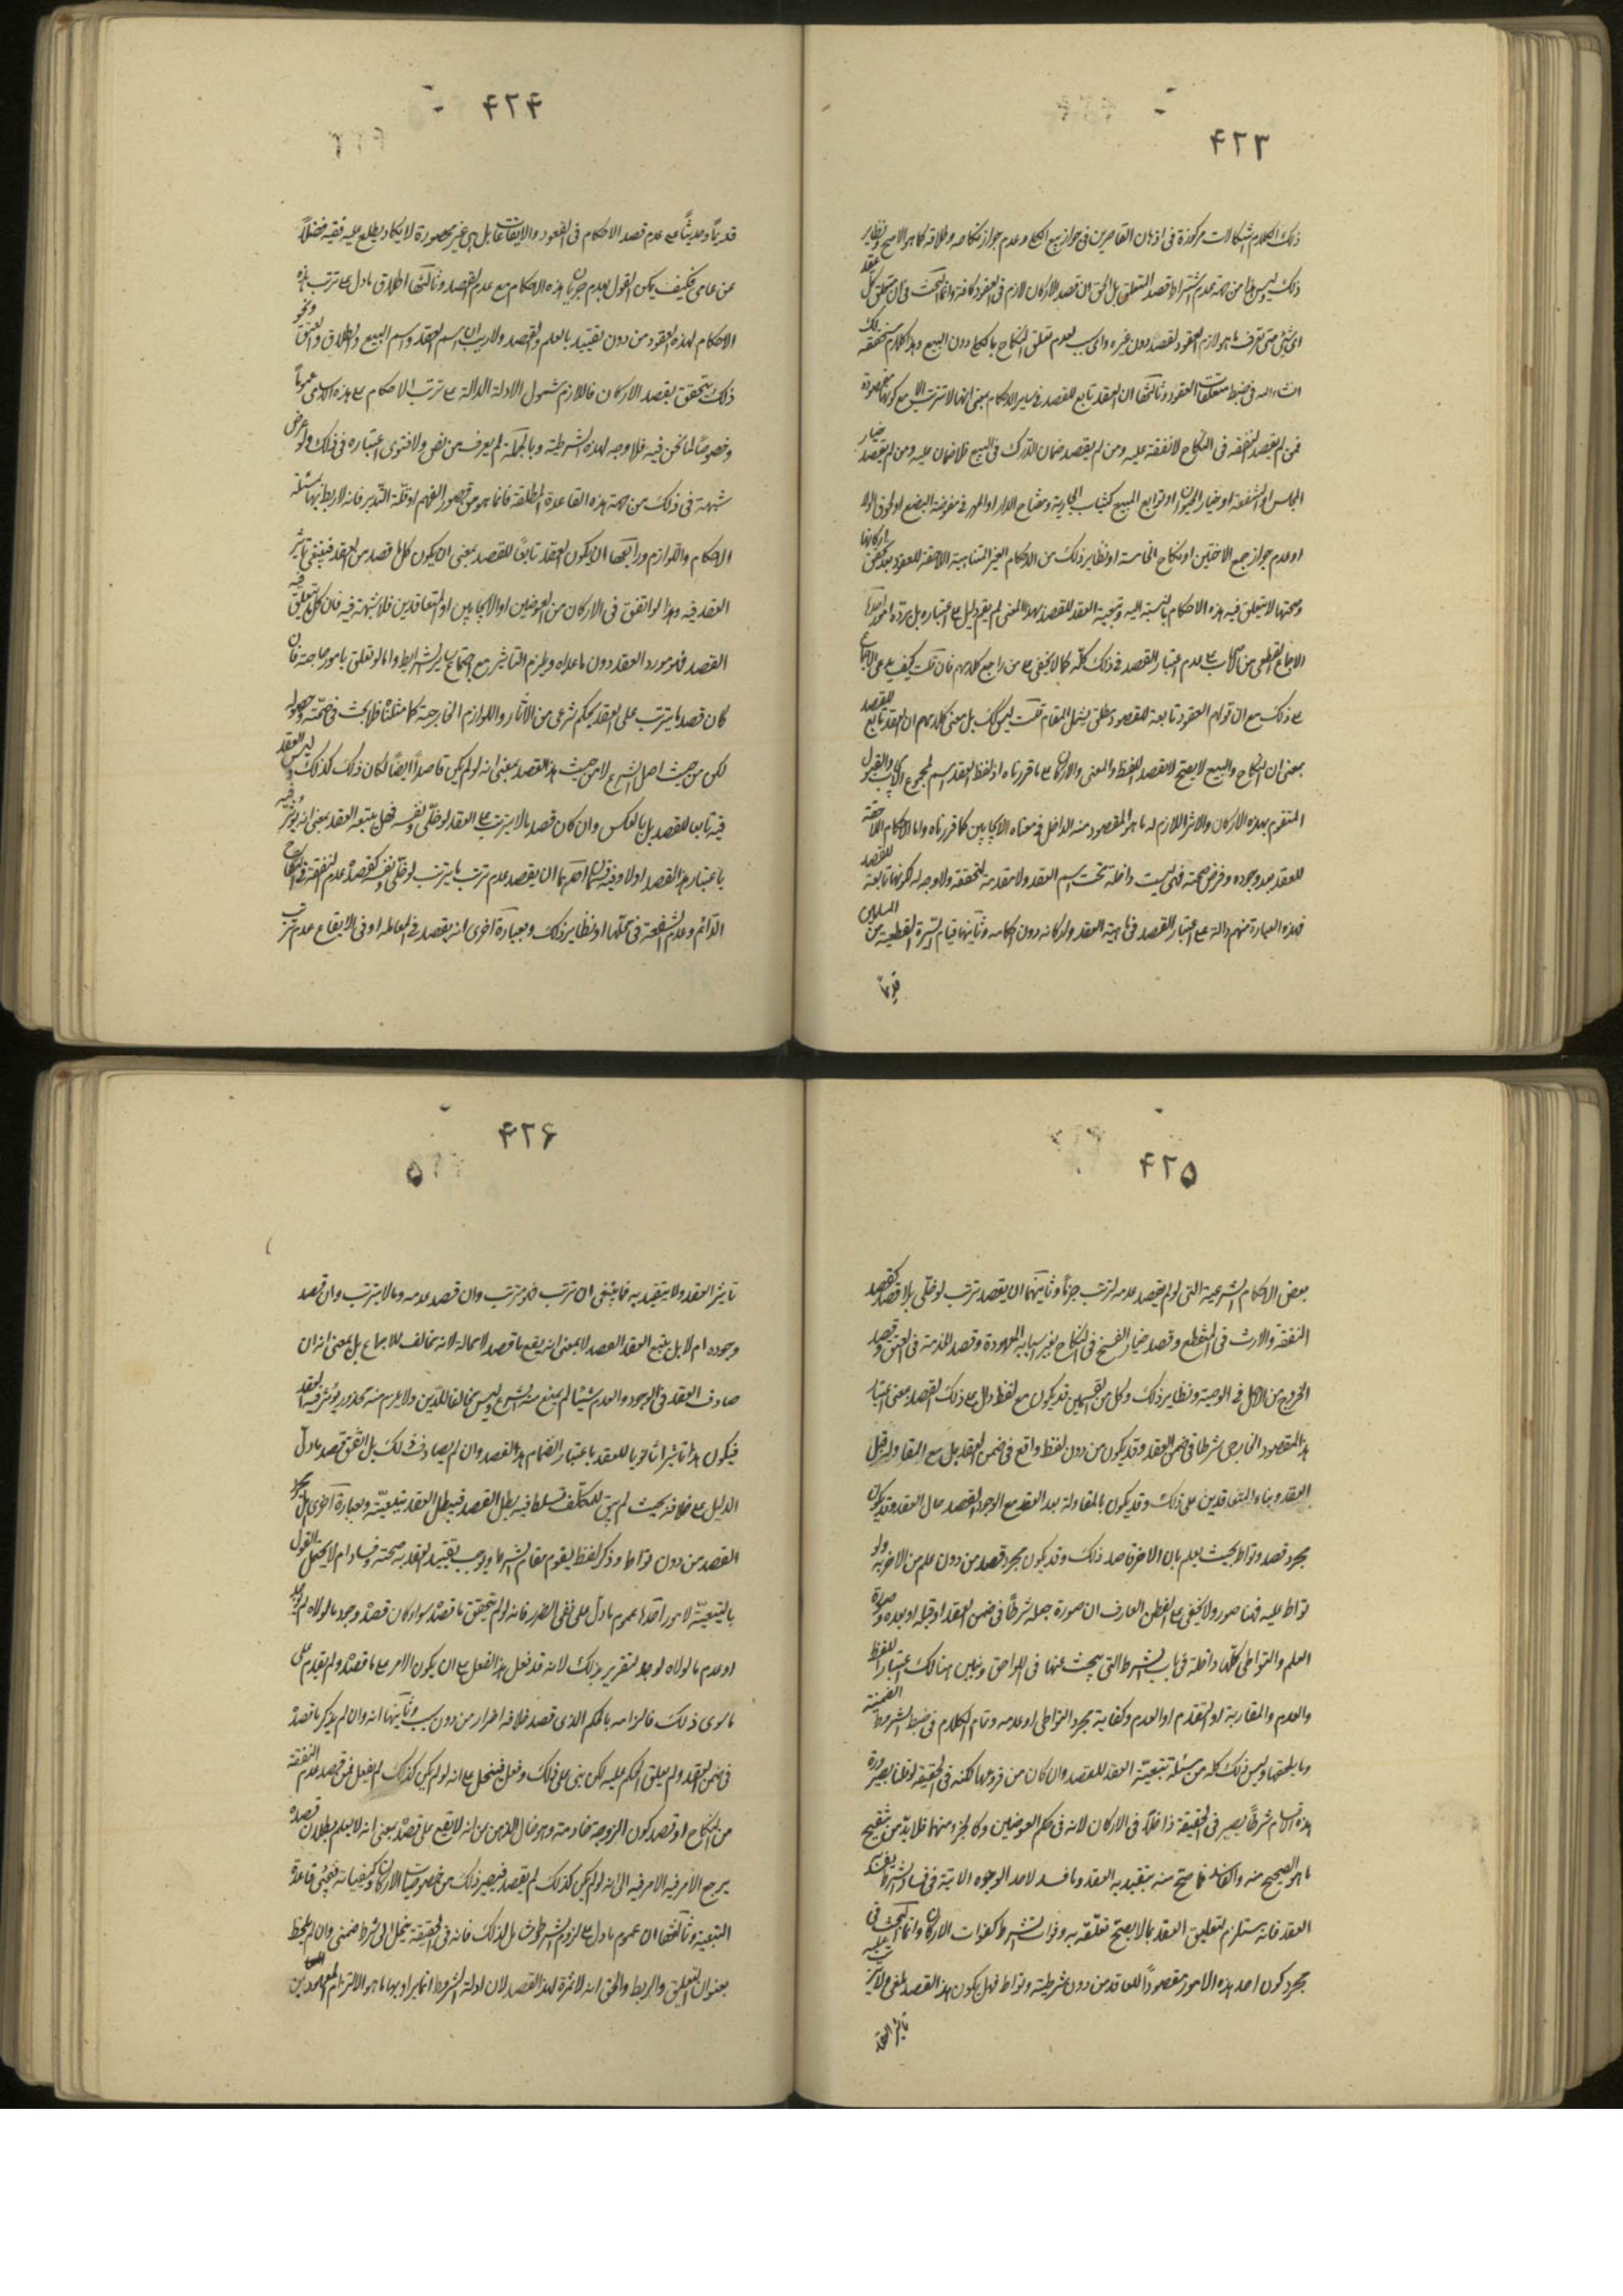 ۴۲۳
ذلك الكلام اشكالات مركوزة فى اذهان القاصرين فى جواز بيع وعدم جواز نكاحه وطلاقه كما هو الامر ونظاير
ذلك ليس من جهة عدم اشتراط قصد المتعلق بل الحق ان قصد الاركان لازم فى العقود كافة وانما البحث فى ان متعلق كل عقد
اى شئ حتى يعرف ما هو لازم العقود لقصد دون غيره واى سبب لعدم تعلق النكاح دون البيع وهذا الكلام سنحققه
انشاء الله فى ضبط متعلقات العقود وثالثها ان العقد تابع للقصد فى ساير الاحكام بمعنى انها لا تترتب الا مع كونها مقصودة
فمن لم يقصد النفقة فى النكاح لا نفقة عليه ومن لم يقصد ضمان الدرك فى البيع فلا ضمان عليه ومن لم يقصد خيار
المجلس او الشفعة او خيار الحيوان او توابع المبيع كثياب الجارية ومفتاح الدار او المهر فى مفوضة البضع او لحوق الولد
او عدم جواز جمع الاختين او نكاح الخامسة او نظاير ذلك من الاحكام الغير المتناهية اللاحقة للعقود بعد تحقق اركانها
وصحتها لا يتعلق فيه هذه الاحكام بالنسبة اليه وتبعية العقد للقصد بهذا المعنى لم يقم دليل على اعتباره بل يرده امور احدها
الاجماع القطعى من الاصحاب على عدم اعتبار القصد فى ذلك كله كما لا يخفى على من راجع كلامهم فان قلت كيف يدعى الاجماع
على ذلك مع ان قولهم العقود تابعة للقصود مطلق يشمل المقام قلت ليس كك بل معنى كلامهم ان العقد تابع للقصد
بمعنى ان النكاح والبيع لا يصح الا بقصد اللفظ والمعنى والاركان على ما قررناه اذ لفظ العقد اسم لمجموع الايجاب والقبول
المتقوم بهذه الاركان والاثر اللازم له ما هو المقصود منه الداخل فى معناه الايجابين كما قررناه واما الاحكام اللاحقة
للعقد بعد وجوده وفرض صحته فهى ليست داخلة تحت اسم العقد ولا مقدمة لتحققه ولا وجه لكونها تابعة للقصد
فهذه العبارة منهم دالة على اعتبار القصد فى ماهية العقد واركانه دون احكامه وثانيها قيام السيرة القطعية من المسلمين
قديماً
۴۲۴
قديماً وحديثاً على عدم قصد الاحكام فى العقود والايقاعات بل هى غير محصورة لا يكاد يطلع عليه فقيه فضلاً
عن عامى فكيف يمكن القول بعدم جريان هذه الاحكام مع عدم القصد وثالثها اطلاق ما دل على ترتب هذه
الاحكام لهذه العقود من دون تقييد بالعلم والقصد ولا ريب ان اسم العقد واسم البيع والطلاق والعتق ونحو
ذلك يتحقق بقصد الاركان فاللازم شمول الادلة الدالة على ترتب الاحكام على هذه الاسامى عموماً
وخصوصاً لما نحن فيه فلا وجه لهذه الشرطية وبالجملة لم يعرف من نص ولا فتوى اعتباره فى ذلك ولو عرض
شبهة فى ذلك من جهة هذه القاعدة المطلقة فانما هو من قصور الفهم او قلة التدبر فانه لا ربط لها بمسئلة
الاحكام واللوازم ورابعها ان يكون العقد تابعاً للقصد بمعنى ان يكون كل ما قصد من العقد فينبغى تاثير
العقد فيه وهذا لو اتفق فى الاركان من العوضين او الايجابين او المتعاقدين فلا شبهة فيه فان كل ما يتعلق فيه
القصد فهو مورد العقد دون ما عداه ويلزم التاثير مع اجتماع ساير الشرايط واما لو تعلق بامور خارجة فان
كان قصد ما يترتب على العقد بحكم شرعى من الآثار واللوازم الخارجة كما مثلناه فلا بحث فى صحته وحصوله
لكن من حيث اصل الشرع لا من حيث هذا القصد بمعنى انه لو لم يكن قاصداً ايضاً لكان ذلك كذلك وليس العقد
فيه تابعا للقصد بل بالعكس وان كان قصد ما لا يترتب على العقد لو خلى ونفسه فهل يتبعه العقد بمعنى انه يؤثر فيه
باعتبار هذا القصد او لا وفيه قسمان احدهما ان يقصد عدم ترتب ما يترتب لو خلى ونفسه كقصد عدم النفقة فى النكاح
الدائم وعدم الشفعة فى محلها او نظاير ذلك وبعبارة اخرى انه يقصد فى المعاملة او فى الايقاع عدم ترتب
۴۲۵
بعض الاحكام الشرعية التى لو لم يقصد عدمه لترتب جزماً وثانيهما ان يقصد ترتب لو خلى بلا قصد كقصد
النفقة والارث فى المنقطع وقصد خيار الفسخ فى النكاح بغير اسبابه المعهودة وقصد الخدمة فى العتق وقصد
الخروج من الاصل فى الوصية ونظاير ذلك وكل من القسمين قد يكون مع لفظ دال على ذلك القصد بمعنى اعتبار
هذا المقصود الخارجى شرطا فى ضمن العقد وقد يكون من دون لفظ واقع فى ضمن العقد بل مع المقاولة قبل
العقد وبناء المتعاقدين على ذلك وقد يكون بالمقاولة بعد العقد مع الوجود القصد حال العقد وقد يكون
مجرد قصد وتواط بحيث يعلم بان الاخر قاصد ذلك وقد يكون مجرد قصد من دون علم من الاخر به ولو
تواط عليه فهنا صور ولا يخفى على الفطن العارف ان صورة جعله شرطاً فى ضمن العقد او قبله او بعده وصورة
العلم والتواطى كلها داخلة فى باب الشرط التى يبحث عنها فى اللواحق ونبين هنالك اعتبار اللفظ
والعدم والمقاربة او التقدم او العدم وكفاية مجرد التواطى او عدمه وتمام الكلام فى ضبط الشروط الضمنية
وما يلحقها وليس ذلك كله من مسئلة تبعية العقد للقصد وان كان من فروعها لكنه فى الحقيقة لو قلنا بصيرورة
هذه الاقسام شرطاً يصير فى الحقيقة داخلاً فى الاركان لانه فى حكم العوضين وكالجزء منهما فلا بد من تنقيح
ما هو الصحيح منه والفاسد فما صح منه يتقيد به العقد وما فسد لاحد الوجوه الاتية فى فساد الشرط يفسد
العقد فانه يستلزم تعليق العقد بما لا يصح تعلقه به وفوات الشرط كفوات الاركان وانما البحث فى
مجرد كون احد هذه الامور مقصوداً للعاقد من دون شرطية وتواط فهل يكون هذا القصد ملغى ولا يترتب عليه
تاثير العقد
۴۲۶
تاثير العقد ولا يتقيد به فما ينبغى ان يترتب فهو يترتب وان قصد عدمه وما لا يترتب وان قصد
وجوده ام لا بل يتبع العقد القصد لا بمعنى انه يقع ما قصد لا محالة لانه مخالف للاجماع بل بمعنى انه ان
صادف العقد فى الوجود والعدم شيئا لم يمنع منه الشرع وليس مخالفا للدين ولا يلزم منه محذور يؤثر فيه العقد
فيكون هذا تاثيراً ثانويا للعقد باعتبار انضمام هذا القصد وان لم يصادف ذلك بل اتفق قصد ما دل
الدليل على خلافه بحيث لم يبق للمكلف تسلط فيه يبطل القصد فيبطل العقد بتبعيته وبعبارة اخرى هل مجرد
القصد من دون تواطا وذكر لفظ يقوم مقام الشرط ويوجب تقييد العقد به صحته وفسادا ام لا يحتمل القول
بالتبعية لامور احدها عموم ما دل على نفى الضرر فانه لو لم يتحقق ما قصده سواء كان قصده وجود ما لولاه لم يوجد
او عدم ما لولاه لوجد لتضرر بذلك لانه قد فعل هذا الفعل على ان يكون الامر على ما قصده ولم يقدم على
ما سوى ذلك فالزامه بالحكم الذى قصد خلافه اضرار من دون سبب وثانيها انه وان لم يذكر ما قصده
فى ضمن العقد ولم يعلق الحكم عليه لكن بنى على ذلك وفعل فينحل على انه لو لم يكن كذلك لم يفعل فمن قصد عدم النفقة
من النكاح او قصد كون الزوجة خادمة وهو خال الذهن من انه لا يقع على قصده بمعنى انه لا يعلم بطلان قصده
يرجع الامر فيه الى انه لو لم يكن كذلك لم يقصد فيصير ذلك من خصوصيات الاركان وكيفياته فيجئ قاعدة
التبعية وثالثها ان عموم ما دل على لزوم الشرط شامل لذلك فانه فى الحقيقة ينحل الى شرط ضمنى وان لم يلحظ
بعنوان التعليق والربط والحق انه لا ثمرة لهذا القصد لان ادلة الشروط انما يراد بها ما هو الالتزام المعهود بين